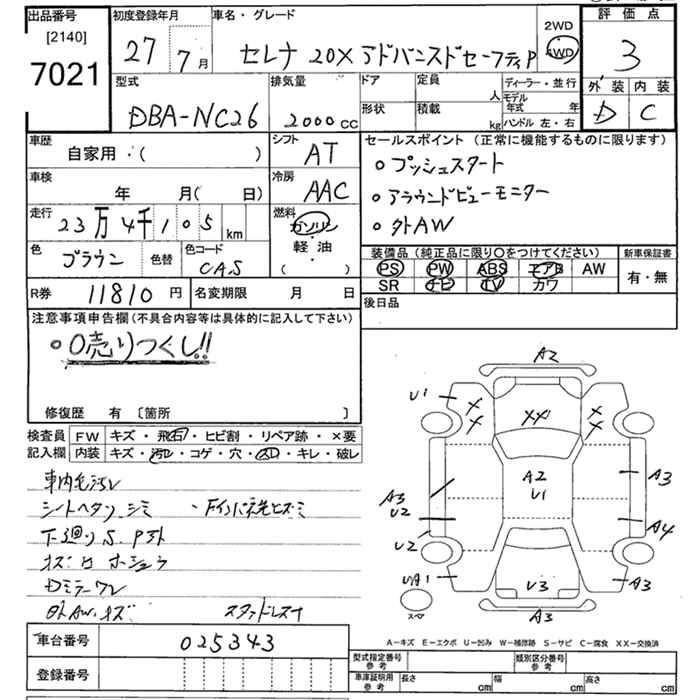 出品番号
[2140]
7021
初度登録年月
27年 7月
車名・グレード
セレナ 20X アドバンスドセーフティP
2WD
4WD
評価点
3
外装 内装
D C
型式
DBA-NC26
排気量
2000cc
ドア
定員 人
形状
積載 kg
ディーラー・並行
モデル年式 年
ハンドル 左・右
車歴
自家用・( )
シフト
AT
セールスポイント (正常に機能するものに限ります)
○プッシュスタート
○アラウンドビューモニター
○外AW
車検
年 月( 日)
冷房
AAC
走行
23万4千105km
燃料
ガソリン
軽油・
( )
色
ブラウン
色替
色コード
CAS
装備品 (純正品に限り○をつけてください)
新車保証書
PS PW ABS エアB AW
有・無
SR ナビ TV カワ
R券
11810円
名変期限 月 日
後日品
注意事項申告欄(不具合内容等は具体的に記入して下さい)
○0売りつくし!!
修復歴 有 〔箇所 〕
検査員
記入欄
FW キズ・飛石・ヒビ割・リペア跡・×要
内装 キズ・汚レ・コゲ・穴・スレ・キレ・破レ
シートヘタリ、シミ
下廻りS.
外AWキズ
スタッドレス
車台番号
025343
登録番号
A2
U1
XX
XX
XX
A2
U1
A3
A3
U2
A4
U2
UA1
U3
A3
A3
スペア
A-キズ E-エクボ U-凹み W-補修跡 S-サビ C-腐食 XX-交換済
型式指定番号
参考
類別区分番号
参考
車庫証明用
参考
長さ cm
幅 cm
高さ cm